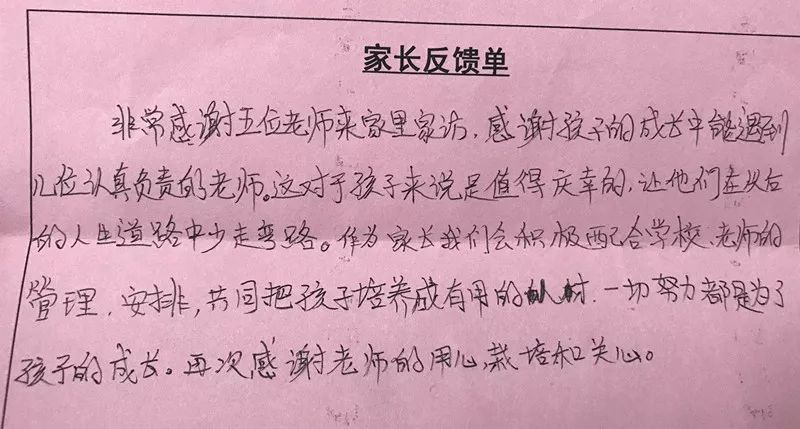 家长反馈单
非常感谢五位老师来家里家访，感谢孩子的成长中能遇到
几位认真负责的老师。这对于孩子来说是值得庆幸的，让他们在以后
的人生道路中少走弯路。作为家长我们会积极配合学校、老师的
管理，安排，共同把孩子培养成有用的人材．一切努力都是为了
孩子的成长。再次感谢老师的用心，栽培和关心。